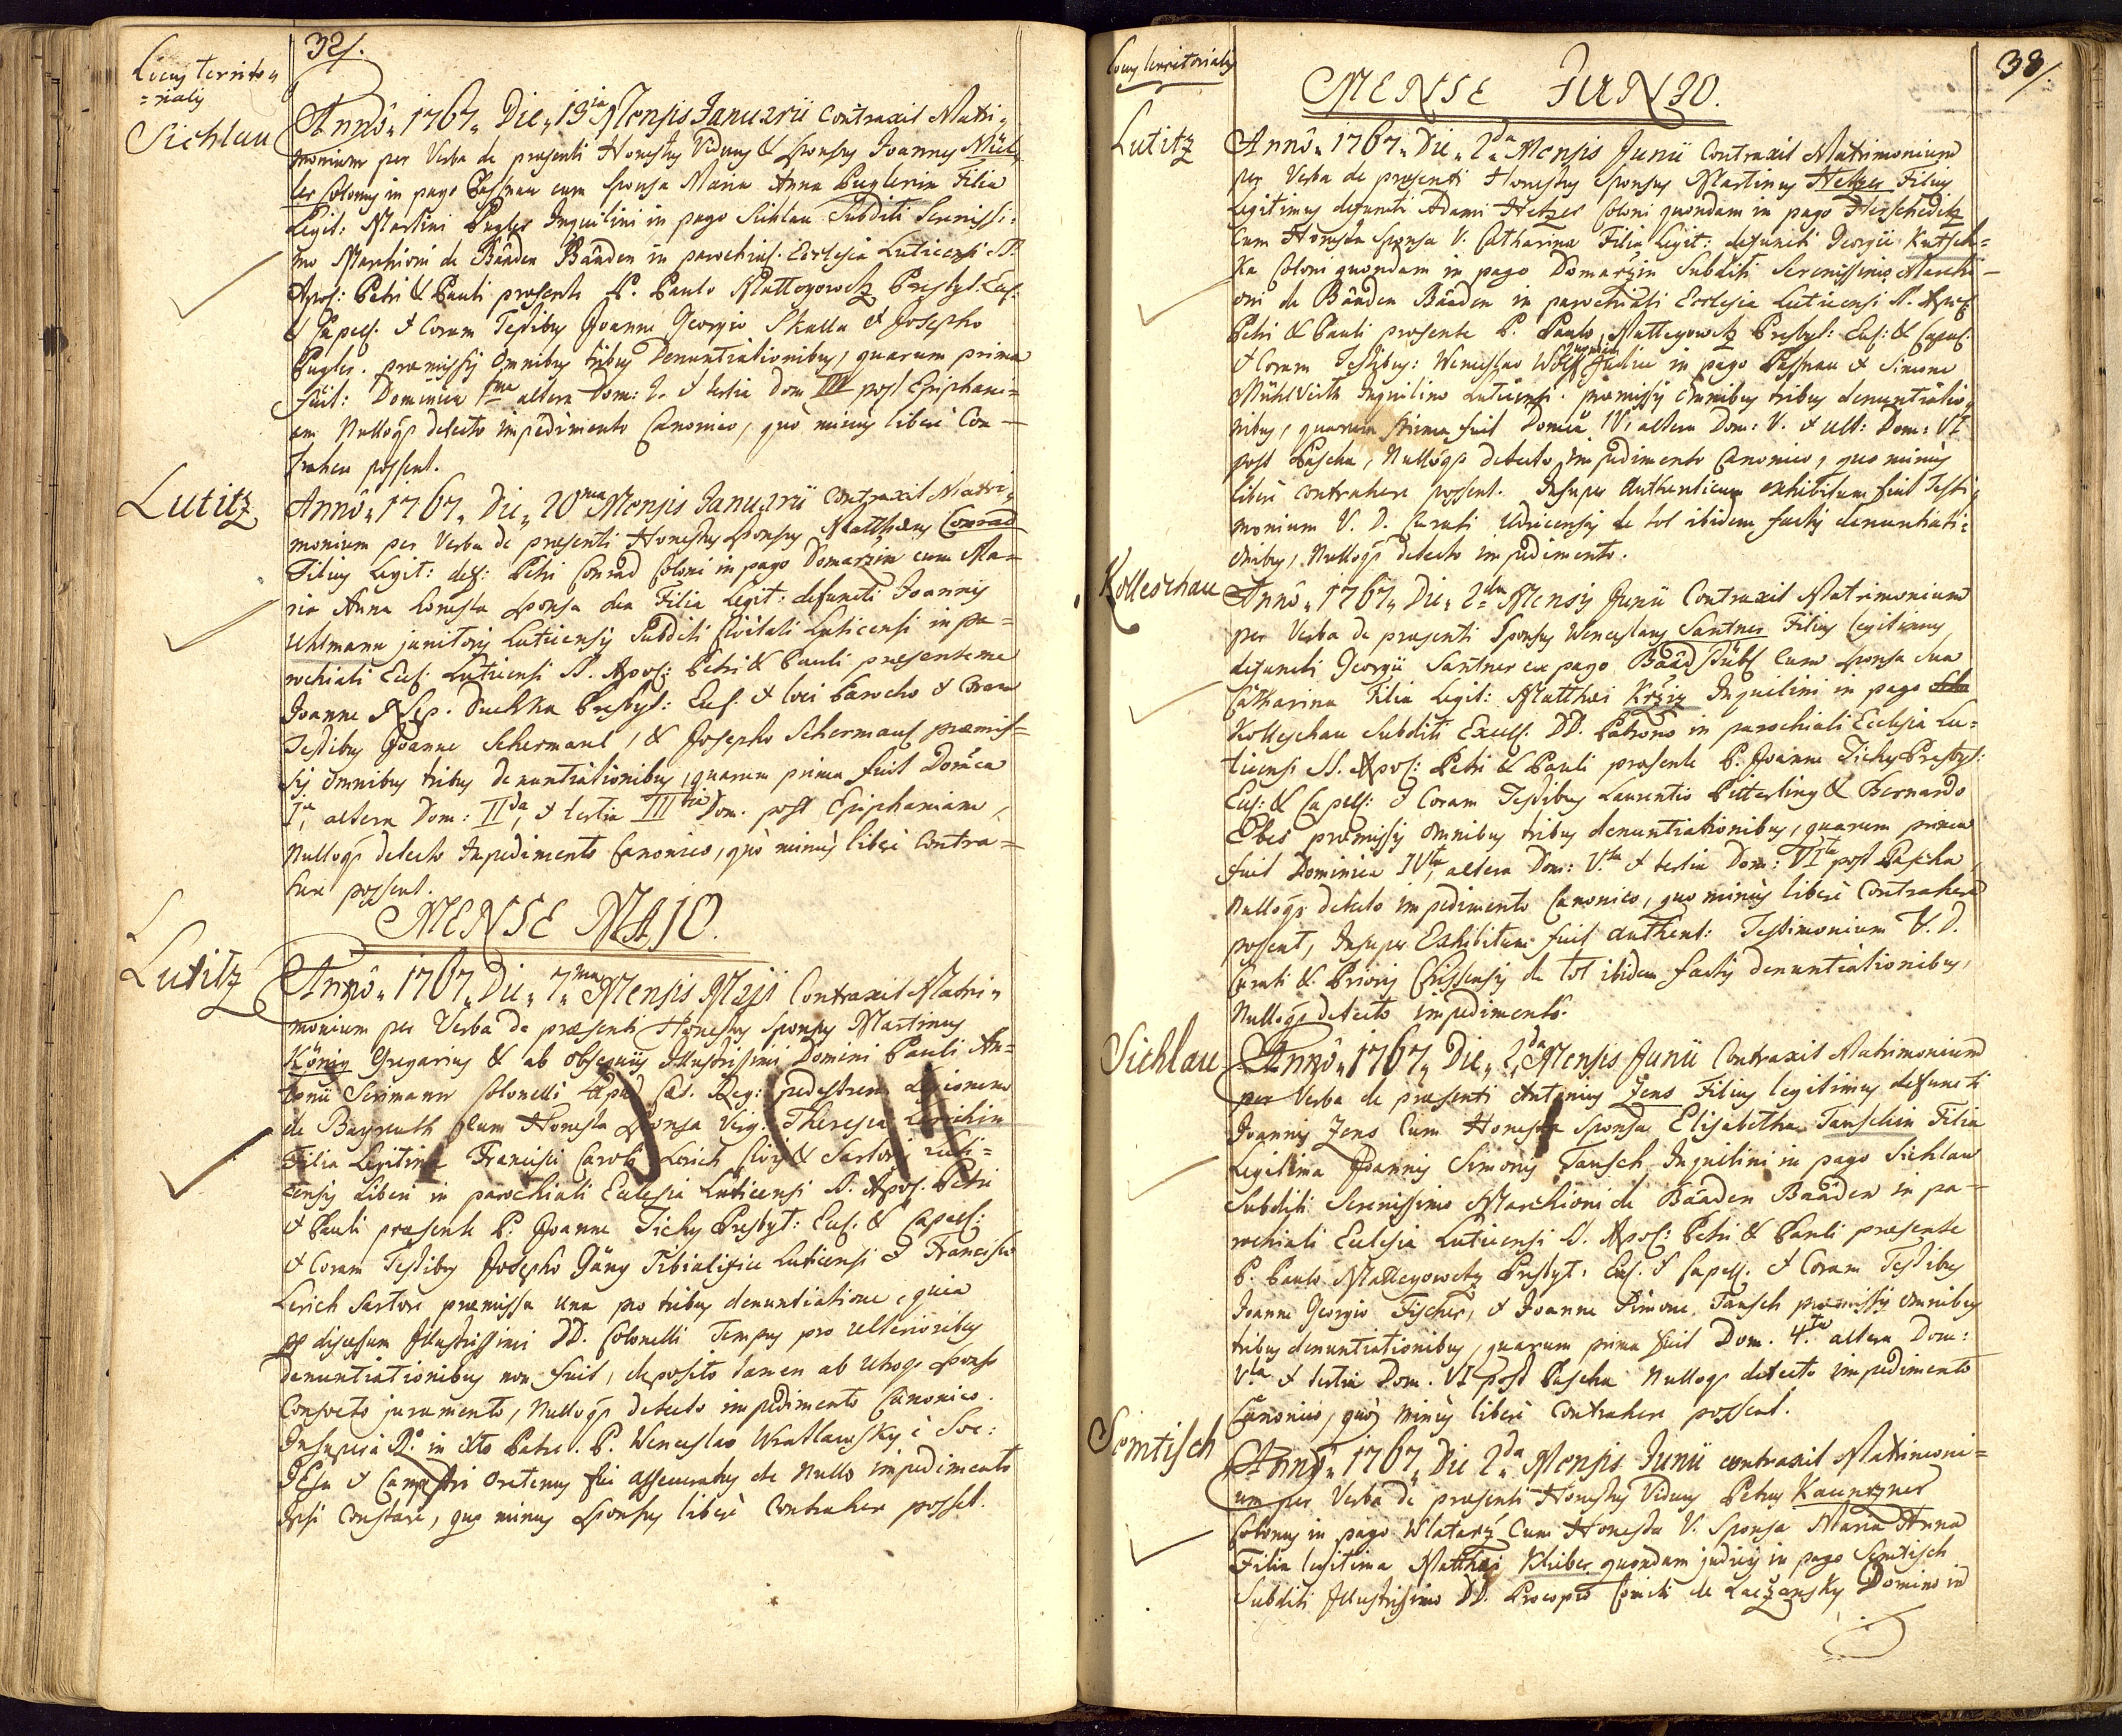 Locus Territo„
=rialis
32/.
Sichlau
Annô„ 1767„ Die„ 13 Mensis Januarii Contraxit Matri„
monium per Verba de praesenti Honestus Viduus & Sponsus Joannes Mül„
ler Colonus in pago Passnau cum Sponsa Maria Anna Puglerin Filia
Legit: Martini Pugler Inquilini in pago Sichlau Subditi Serenissi:
mo Marchioni de Bâaden Bâaden in parochial. Ecclesia Luticensi SS.
Apos: Petri & Pauli praesente P. Paulo Mattegowetz Presbyt: Eccl:
& Capell. & Coram Testibus Joanne Georgio Skalla & Josepho
Pugler. praemissis Omnibus tribus Denuntiationibus, quarum prima
fuit: Dominica Ima altera Dom: 2. & tertia Dom III post Epiphani=
am Nullôqs detecto impedimento Canonico, quò minùs liberè Con—
trahere possent.
Lutitz
Annô„ 1767„ Die„ 20ma Mensis Januarii Contraxit Matri„
monium per Verba de praesenti Honestus Sponsus Matthaeus Conrad
Filius Legit: def: Petri Conrad Coloni in pago Domaržin cum Ma=
ria Anna honesta Sponsa sua Filia Legit: defuncti Joannis
Uhlmann janitoris Luticensis Subditi Civitati Luticensi in pa=
rochiali Eccl. Luticensi SS. Apos: Petri & Pauli praesente me
Joanne Nep. Duchka Presbyt: Eccl: & loci Parocho & Coram
Testibus Joanne Schermaul, & Josepho Schermaul praemis=
sis Omnibus tribus denuntiationibus, quarum prima fuit Domĩca
Ia, altera Dom: IIda, & tertia IIItia Dom. post Epiphaniam,
Nullôqs detecto Inpedimento Canonico, quò minùs liberè Contra=
here possent.
MENSE MAJO.
Lutitz
Annô„ 1767„ Die„ 7ma Mensis Maji Contraxit Matri„
monium per Verba de praesenti Honestus Sponsus Martinus
König Gregarius & ab obsequiis Illustrissimi Domini Pauli An=
tonii Colonelli apud Caes. Reg: pedestrem Legionem
de Bayreuth Cum Honesta Sponsa Virg: Theresia Lerichin
Filia Legitima Francisci Caroli Lerich Civis & Sartoris Luti=
censis Liberi in parochiali Ecclesia Luticensi SS. Apos: Petri
& Pauli praesente P. Joanne Tichy Presbyt: Eccl. & Capell:
& Coram Testibus Josepho Gäng Tibialifice Luticensi & Francisco
Lerich Sartore praemissa una pro tribus denuntiatione, quia
ob discessum Illustrissimi DD. Colonelli Tempus pro ulterioribus
denuntiationibus non fuit, deposito tamen ab utroqs Sponso
Consueto juramento, Nullôqs detecto impedimento Canonico.
Insuper à R. in xto Patre. P. Wenceslao Wratlawsky è Soc:
JEsu & Campestri oretenus fui assecuratus de Nullo impedimento
Ipsi Constare, quo minus Sponsus liberè Contrahere posset.
Locus Territorialis
38/.
MENSE JUNIO.
Lutitz
Annô„ 1767„ Die„ 2da Mensis Junii Contraxit Matrimonium
per Verba de praesenti Honestus Sponsus Martinus Hetzer Filius
Legitimus defuncti Adami Hetzer Coloni quondam in pago Herscheditz
Cum Honesta Sponsa V. Catharina Filia Legit: defuncti Georgii Kutsch=
ka Coloni quondam in pago Domaržin Subditi Serenissimo Marchi—
oni de Bâaden Bâaden in parochiali Ecclesia Luticensi SS. Apos:
Petri & Pauli praesente P. Paulo Mattegowetz Presbyt: Eccl: & Capell:
& Coram Testibus: Wenceslao Wolf Judice in pago Passnau & Simone
Mühlvirth Inquilino Luticensi. praemissis Omnibus tribus denuntiatio„
nibus, quarum prima fuit Domĩca IV, altera Dom: V. & ult: Dom: VI
post Pascha, Nullôqs detecto impedimento Canonico, quo minùs
liberè contrahere possent. Insuper Authenticum exhibitum fuit Testi„
monium V. D. Curati Udricensis de tot ibidem factis denuntiati=
onibus, Nullôqs detecto impedimento.
Kolleschau
Annô„ 1767„ Die„ 2da Mensis Junii Contraxit Matrimonium
per Verba de praesenti Sponsus Wenceslaus Santner Filius legitimus
defuncti Georgii Santner ex pago Bâadstübl Cum Sponsa sua
Catharina Filia Legit: Matthaei Kržiz Inquilini in pago
Kolleschau Subditi Excell. DD. Patrono in parochiali Ecclesia Lu=
ticensi SS. Apos: Petri & Pauli praesente P. Joanne Tichy Presbyt:
Eccl: & Capell: & Coram Testibus Laurentio Pitterling & Bernardo
Ebes praemissis Omnibus tribus denuntiationibus, quarum prima
fuit Dominica IVta, altera Dom: V.ta & tertia Dom: VIta post Pascha,
Nullôqs detecto impedimento Canonico, quo minùs liberè Contrahere
possent, Insuper Exhibitum fuit authent: Testimonium V. D.
Curati & Prioris Chissensis de tot ibidem factis denuntiationibus,
Nullôqs detecto impedimento.
Sichlau
Annô„ 1767„ Die„ 2da Mensis Junii Contraxit Matrimonium
per Verba de praesenti Antonius Zens Filius legitimus defuncti
Joannis Zens Cum Honesta Sponsa Elisabetha Tauschin Filia
Legitima Joannis Simonis Tausch Inquilini in pago Sichlau
Subditi Serenissimo Marchioni de Bâaden Bâaden in pa=
rochiali Ecclesia Luticensi SS. Apos: Petri & Pauli praesente
P. Paulo Mattegowetz Presbyt: Eccl. & Capell. & Coram Testibus
Joanne Georgio Fischer, & Joanne Simone Tausch praemissis omnibus
tribus denuntiationibus, quarum prima fuit Dom. 4.ta altera Dom:
V.ta & tertia Dom. VI post Pascha Nullôqs detecto impedimento
Canonico, quò minùs liberè contrahere possent.
Semtisch
Annô„ 1767„ Die 2da Mensis Junii contraxit Matrimoni=
um per Verba de praesenti Honestus Viduus Petrus Kauntzner
Colonus in pago Wlatarž Cum Honesta V. Sponsa Maria Anna
Filia legitima Matthaei Klieber quondam judicis in pago Semtisch
Subditi Illustrissimo DD. Procopio Comiti de Lažansky Domino in